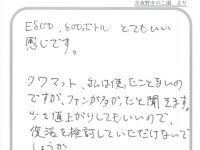 吉夜野きのこ園 より
E500, 800ボトル とてもいい
感じです。
クワマット、私は使ったことないの
ですが、ファンが多かったと聞きます。
少々値上がりしてもいいので、
復活を検討していただけないで
しょうか